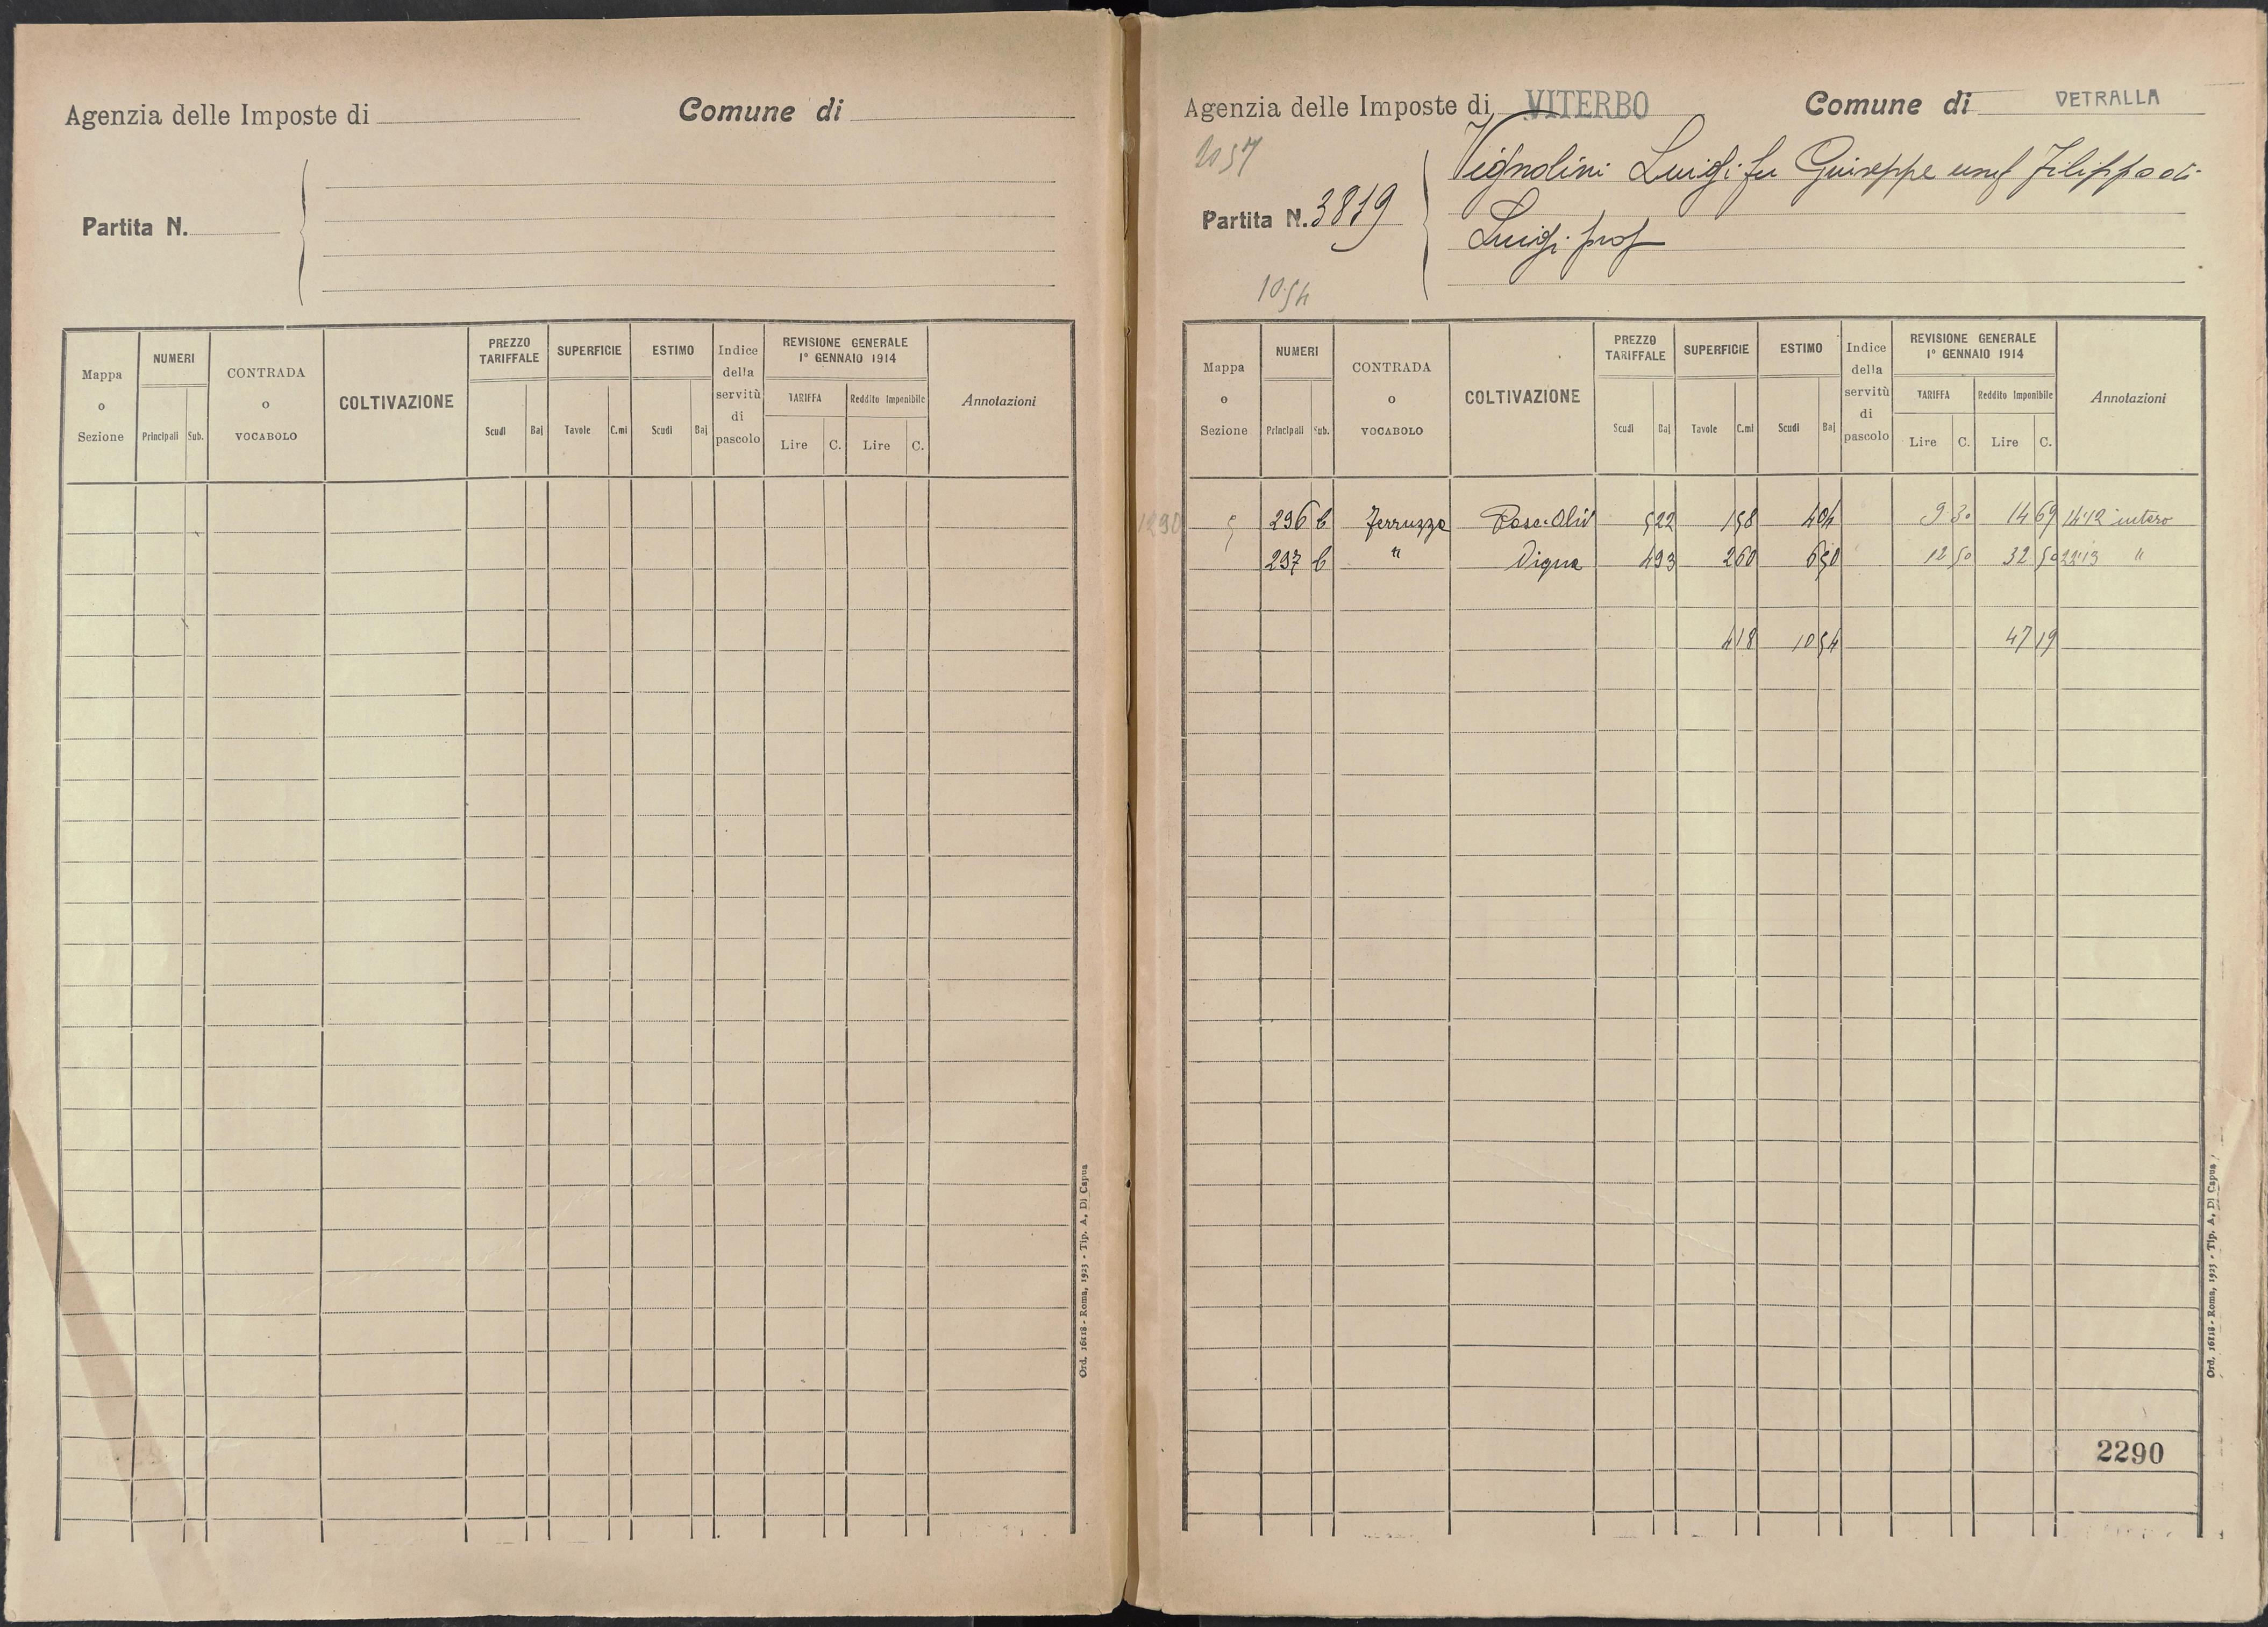 Agenzia delle Imposte di
Comune di
Partita N.
Mappa o Sezione
NUMERI
Principali Sub.
CONTRADA o VOCABOLO
COLTIVAZIONE
PREZZO TARIFFALE
Scudi Baj
SUPERFICIE
Tavole C.mi
ESTIMO
Scudi Baj
Indice della servitù di pascolo
REVISIONE GENERALE
1° GENNAIO 1914
TARIFFA
Reddito Imponibile
Lire C. Lire C.
Annotazioni
Ord. 16118 - Roma, 1923 - Tip. A. Di Capua
Agenzia delle Imposte di VITERBO
Comune di VETRALLA
2057
Vignolini Luigi fu Giuseppe usuf Filippo di
Partita N. 3819
Luigi prop
1054
Mappa o Sezione
NUMERI
Principali Sub.
CONTRADA o VOCABOLO
COLTIVAZIONE
PREZZO TARIFFALE
Scudi Baj
SUPERFICIE
Tavole C.mi
ESTIMO
Scudi Baj
Indice della servitù di pascolo
REVISIONE GENERALE
1° GENNAIO 1914
TARIFFA
Reddito Imponibile
Lire C. Lire C.
Annotazioni
1290 5 296 b Ferruzza Pasc. Oliv 5 22 1 58 4 04 9 30 14 69 1412 intero
297 b " Vigna 4 93 2 60 6 50 12 50 32 50 2213 "
4 18 10 54 47 19
2290
Ord. 16118 - Roma, 1923 - Tip. A. Di Capua